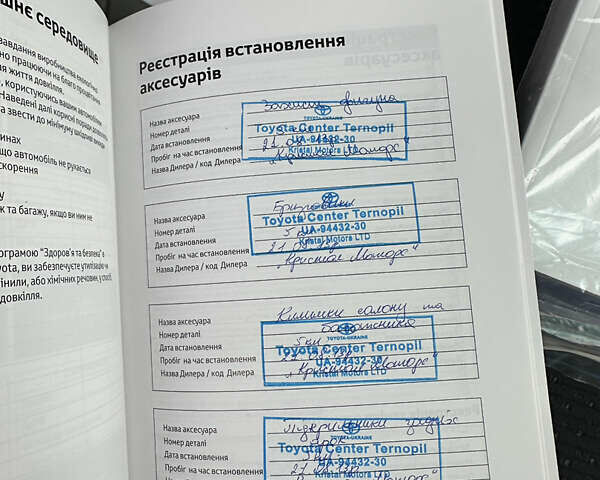 шнє середовище
завдання виробництва екологічно
но працюючи на благо процвітання
я життя довкілля.
, користуючись вашим автомобілем
Наведені далі корисні поради допоможуть
та звести до мінімуму шкідливі викиди
инах
що автомобіль не рухається
скорення
у
ж та багажу, якщо ви ним не
ограмою "Здоров'я та безпека" в
yota, ви забезпечуєте утилізацію чи
інили, або хімічних речовин, у спосіб,
довкілля.
Реєстрація встановлення
аксесуарів
Назва аксесуара Захист двигуна
Номер деталі
Дата встановлення
Пробіг на час встановлення
Назва Дилера / код Дилера "Кристал Моторс"
TOYOTA-UKRAINE
Toyota Center Ternopil
UA-94432-30
Kristal Motors LTD
Назва аксесуара Бризковики
Номер деталі
Дата встановлення 5 км
Пробіг на час встановлення
Назва Дилера / код Дилера "Кристал Моторс"
Toyota Center Ternopil
UA-94432-30
Kristal Motors LTD
Назва аксесуара Килимки салону та
Номер деталі багажника
Дата встановлення 5 км
Пробіг на час встановлення
Назва Дилера / код Дилера "Кристал Моторс"
TOYOTA-UKRAINE
Toyota Center Ternopil
UA-94432-30
Kristal Motors LTD
Назва аксесуара Підкрилки
Номер деталі
Дата встановлення
Пробіг на час встановлення
TOYOTA-UKRAINE
Toyota Center Ternopil
UA-94432-30